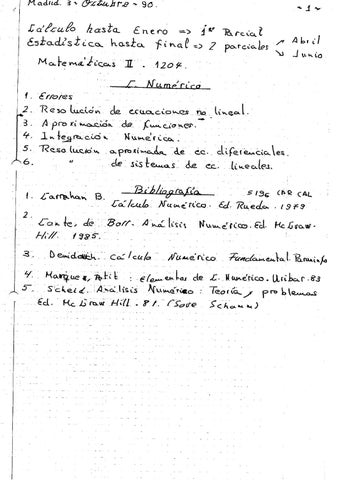 Madrid 3- Octubre - 90. - 1 -
Cálculo hasta Enero => 1er Parcial
Estadística hasta final => 2 parciales Abril
Junio
Matemáticas II . 1204.
C. Numérico
1. Errores
2. Resolución de ecuaciones no lineal.
3. Aproximación de funciones.
4. Integración Numérica.
5. Resolución aproximada de ec. diferenciales.
6. " de sistemas de ec. lineales.
Bibliografía
1. Carnahan B. 5196 CAR CAL
Cálculo Numérico. Ed. Rueda. 1979
2. Conte, de Boor. Análisis Numérico. Ed McGraw-
Hill. 1985.
3. Cálculo Numérico Fundamental. Paraninfo
4. Marquez, : elementos de C. Numérico. Uribar. 83
5. Scheid. Análisis Numérico : Teoría y problemas
Ed. McGraw Hill . 81.